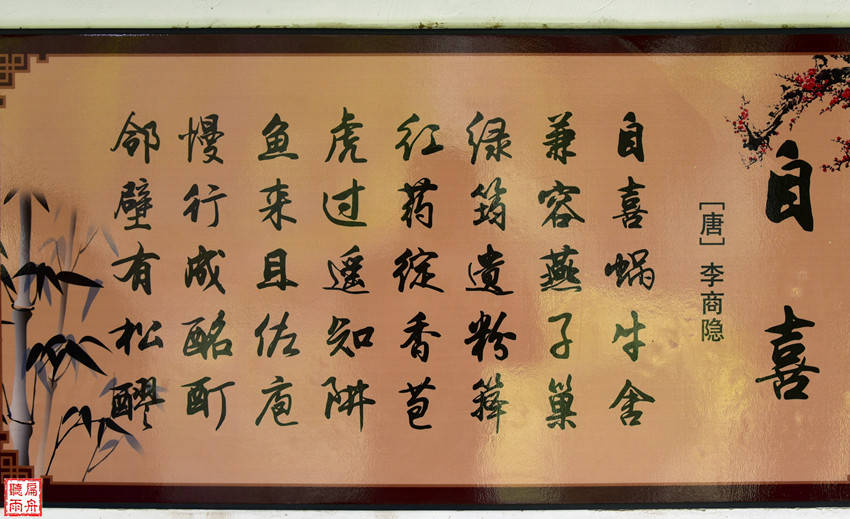 自喜
[唐] 李商隐
自喜蜗牛舍
兼容燕子巢
绿筠遗粉箨
红药绽香苞
虎过遥知阱
鱼来且佐庖
慢行成酩酊
邻壁有松醪
扁舟
聽雨